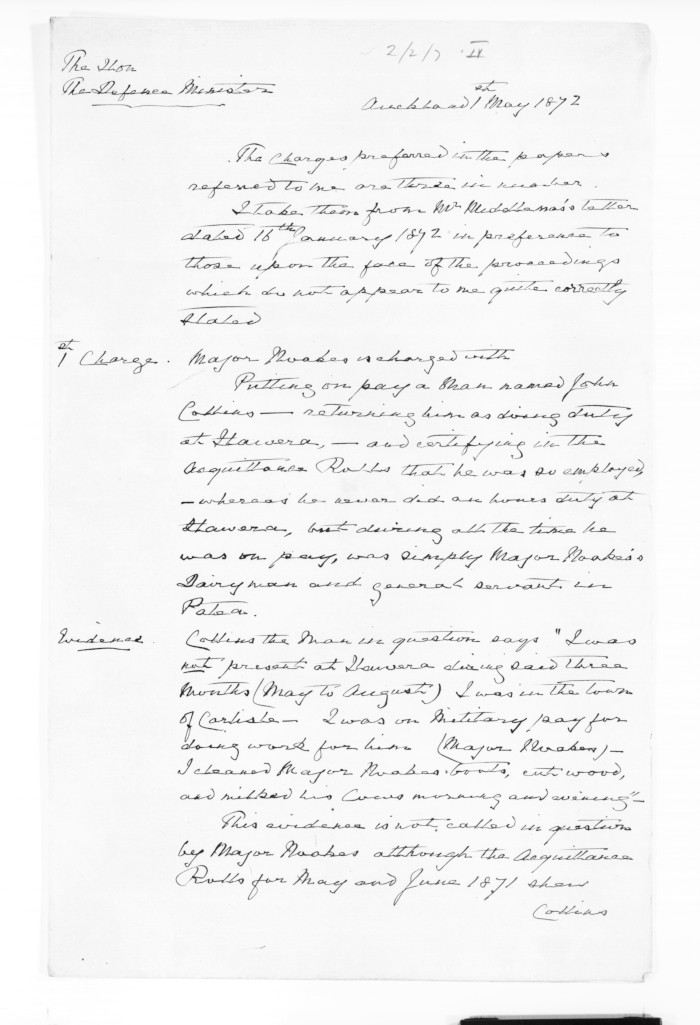 2/2/7 · II
The Hon
The Defence Minister
Auckland 1st May 1872
The Charges preferred in the papers
referred to me are three in number.
I take them from Mr letter
dated 16th January 1872 in preference to
those upon the face of the proceedings
which do not appear to me quite correctly
stated
1st Charge. Major Noakes is charged with
Putting on pay a Man named John
Collins — returning him as doing duty
at Hawera, — and certifying in the
Acquittance Rolls that he was so employed,
— whereas he never did an hours duty at
Hawera, but during all the time he
was on pay, was simply Major Noakes's
Dairyman and general servant in
Patea.
Evidence. Collins the Man in question says "I was
not present at Hawera during said three
Months (May to August) I was in the town
of Carlisle — I was on Military pay for
doing work for him (Major Noakes) —
I cleaned Major Noakes boots, cut wood,
and milked his Cows morning and evening" —
This evidence is not called in question
by Major Noakes although the Acquittance
Rolls for May and June 1871 shew
Collins